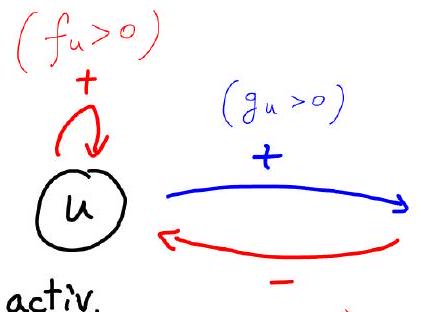 (fu>0)
+
(gu>0)
+
u
-
activ.